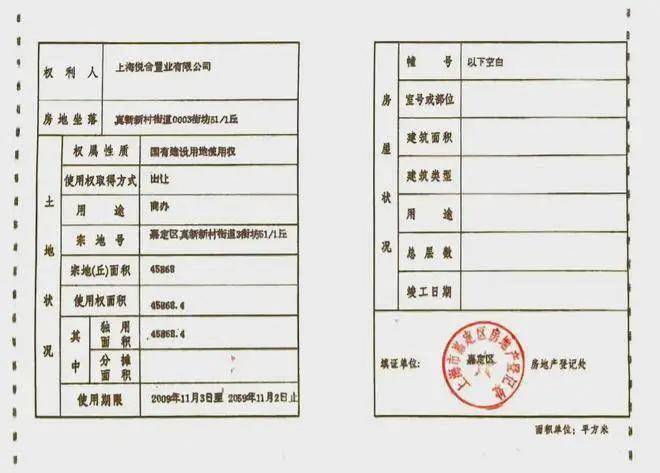 权利人 上海悦合置业有限公司
房地坐落 真新新村街道0003街坊51/1丘
土地状况
权属性质 国有建设用地使用权
使用权取得方式 出让
用途 商办
宗地号 嘉定区真新新村街道3街坊51/1丘
宗地(丘)面积 45868
使用权面积 45868.4
其中
独用面积 45868.4
分摊面积
使用期限 2009年11月3日至 2059年11月2日止
房屋状况
幢号 以下空白
室号或部位
建筑面积
建筑类型
用途
总层数
竣工日期
填证单位: 嘉定区 房地产登记处
上海市嘉定区房地产登记处
面积单位: 平方米